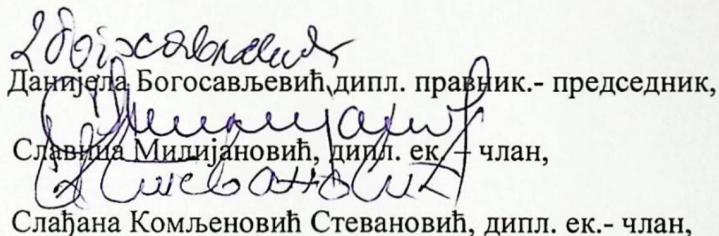 Данијела Богосављевић, дипл. правник.- председник,
Славица Милијановић, дипл. ек. – члан,
Слађана Комљеновић Стевановић, дипл. ек.- члан,